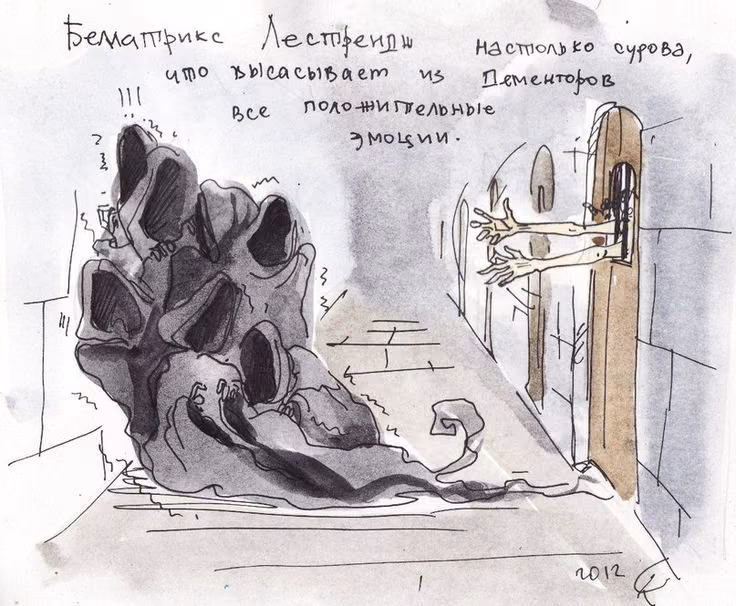 Бематрикс Лестрендж настолько сурова,
что высасывает из Дементоров
все положительные
эмоции.
!!!
?
!!!
2012